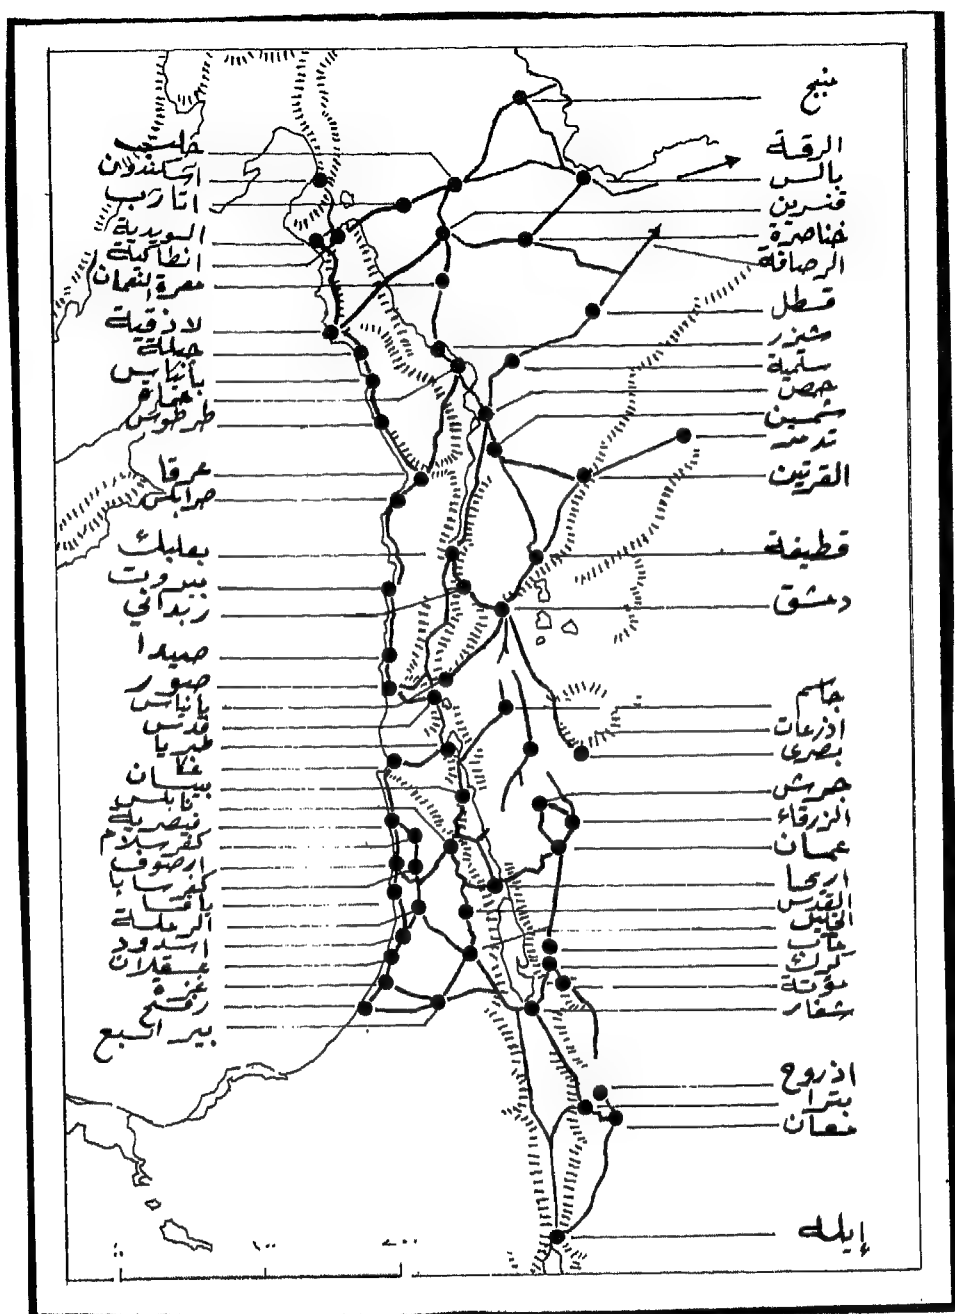 منبج
الرقة
بالس
قنسرين
خناصرة
الرصافة
قسطل
شيزر
سلمية
حمص
شمسين
تدمر
القريتين
قطيفة
دمشق
جاسم
اذرعات
بصرى
جرش
الزرقاء
عمان
اريحا
القدس
الخليل
مآب
كرك
مؤتة
شغار
اذروح
بترا
معان
إيله
حلب
اسكندلان
اتارب
السويدية
انطاكية
معرة النعمان
لاذقية
جبلة
بانياس
حماة
طرطوس
عرقا
طرابلس
بعلبك
بيروت
زبداني
صيدا
صور
بانياس
قدس
طبريا
عكا
بيسان
نابلس
قيصرية
كفر سلام
ارصوف
كفر سابا
يافا
الرملة
اسدود
عسقلان
غزة
رفح
بير السبع
١٠٠
٢٠٠